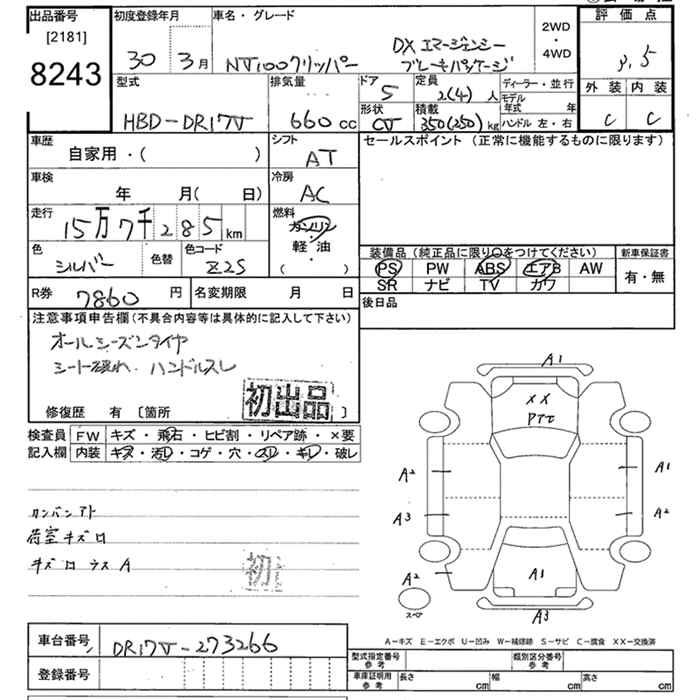 出品番号
[2181]
8243
初度登録年月
30年 3月
車名・グレード
NT100クリッパー
DX エマージェンシー
ブレーキパッケージ
2WD
・
4WD
評価点
3.5
外装 内装
C C
型式
HBD-DR17V
排気量
660 cc
ドア
5
定員
2(4)人
形状
CV
積載
350(250)kg
ディーラー・並行
モデル年式 年
ハンドル 左・右
車歴
自家用・( )
シフト
AT
セールスポイント(正常に機能するものに限ります)
車検
年 月( 日)
冷房
AC
走行
15万7千285km
燃料
ガソリン
軽・油
・( )
色
シルバー
色替
色コード
Z2S
装備品(純正品に限り○をつけてください)
PS PW ABS エアB AW
SR ナビ TV カワ
新車保証書
有・無
R券
7860円
名変期限 月 日
後日品
注意事項申告欄(不具合内容等は具体的に記入して下さい)
オールシーズンタイヤ
シート破れ. ハンドルスレ
初出品
修復歴 有 〔箇所 〕
検査員記入欄
FW キズ・飛石・ヒビ割・リペア跡・×要
内装 キズ・汚レ・コゲ・穴・スレ・キレ・破レ
カンバンアト
荷室キズロ
初
A1
XX
A2
A1
A3
A2
A1
A2
スペア
A3
A-キズ E-エクボ U-凹み W-補修跡 S-サビ C-腐食 XX-交換済
車台番号
DR17V-273266
登録番号
型式指定番号
参考
類別区分番号
参考
車庫証明用
参考
長さ cm
幅 cm
高さ cm